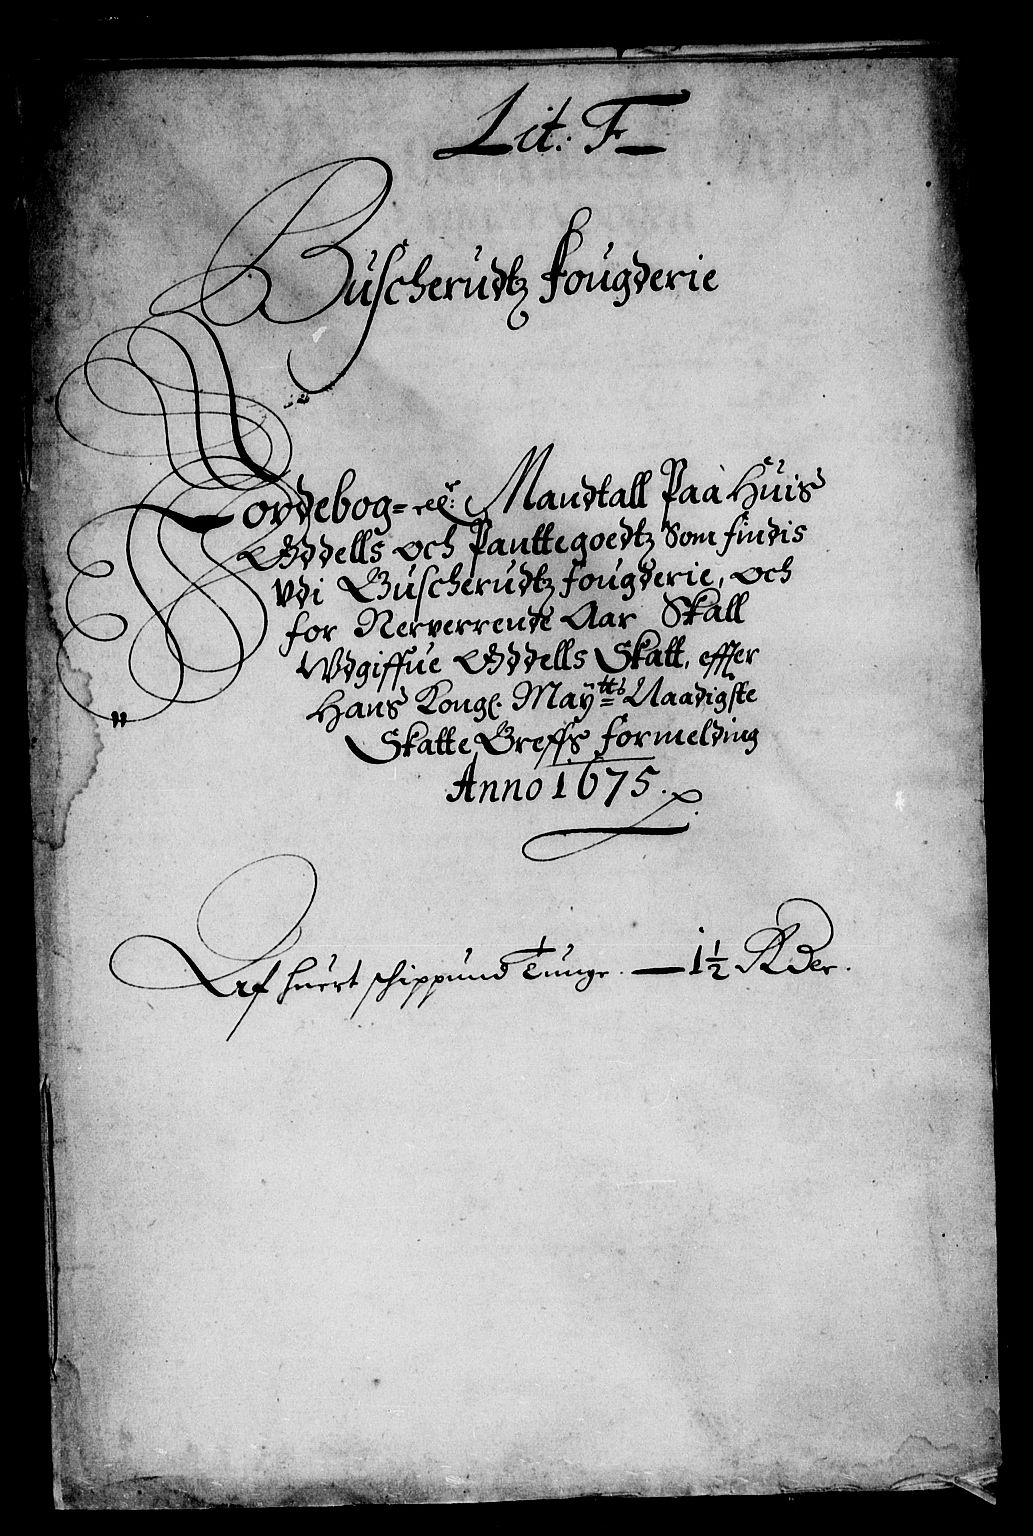 Lit: F
Buscherudtz fougderie
Jordebog= eℓ: Mandtall Paa Huis
Oddells och Panttegoedtz Som findis
Vdi Buscherudtz fougderie, och
for Nerverrende Aar Skall
Wdgiffue Oddells Skatt, effter
Hans Kongl. Maÿtts Naadigste
Skatte Breffs formelding
Anno 1675.
Aff huert schippund Tunge. — 1½ RDer.